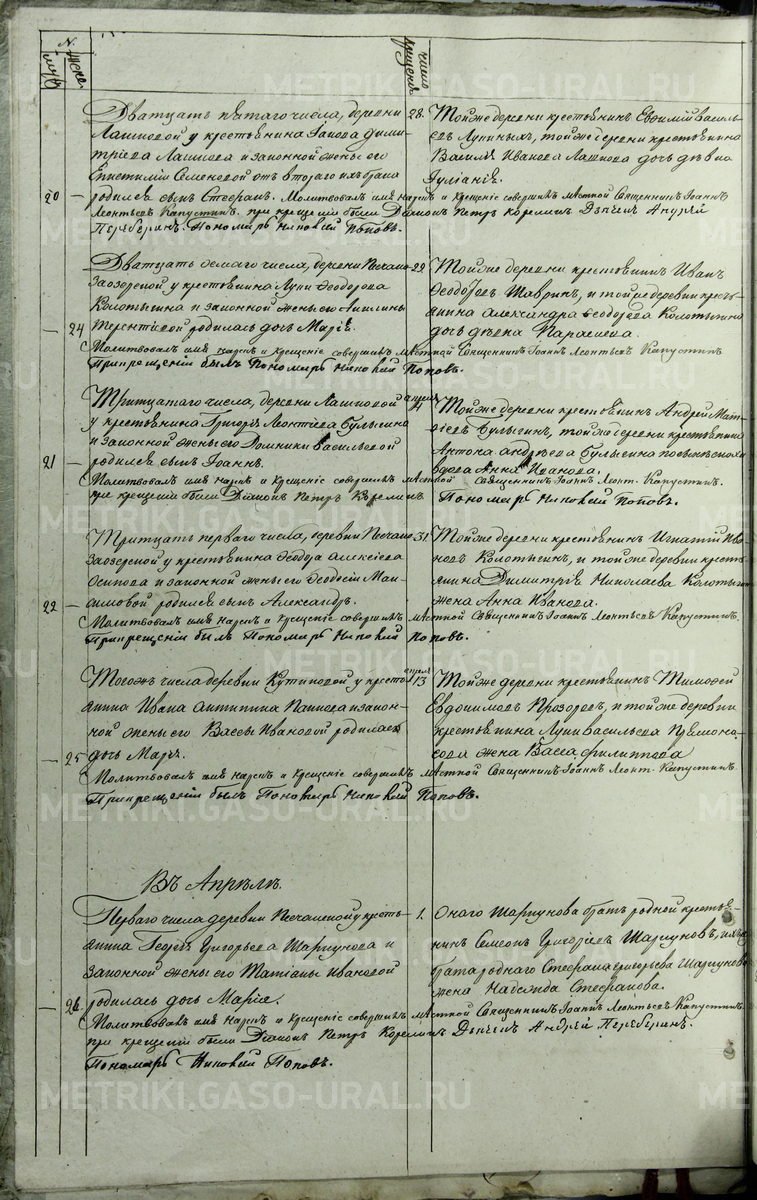 №
муж
жен
число крещения
Дватцать пятаго числа, деревни
у крестьянина Іакова Дими-
тріева и законной жены его
Епистиміи Семеновой отъ втораго ихъ брака
20 — родился сынъ Стефанъ. Молитвовалъ имя нарекъ и Крещеніе совершилъ мѣстной Священникъ Іоаннъ
Леонтьевъ Капустинъ. при крещеніи были Діаконъ Петръ Корелинъ Дьячекъ Андрей
Переберинъ. Пономарь Никовій Поповъ.
28. Той же деревни крестьянинъ Евѳимій Василь-
евъ Лупиныхъ, той же деревни крестьянина
Василія Иванова дочь дѣвка
Іуліанія.
Дватцать осмаго числа, деревни Песчано-
Заозерской у крестьянина Луки Ѳеодорова
Колотыгина и законной жены его Акилины
— 24 Терентіевой родилась дочь Марія.
Молитвовалъ имя нарекъ и Крещеніе совершилъ мѣстной Священникъ Іоаннъ Леонтьевъ Капустинъ
При крещеніи былъ Пономарь Никовій Поповъ.
29. Той же деревни крестьянинъ Иванъ
Ѳеодоровъ Шавринъ, и той же деревни кресть-
янина Александра Ѳеодорова Колотыгина
дочь дѣвка Параскева.
Тритцатаго числа, деревни
у крестьянина Григорія Леонтіева Булыгина
и законной жены его Домники Васильевой
21 — родился сынъ Іоаннъ.
Молитвовалъ имя нарекъ и Крещеніе совершилъ мѣстной Священникъ Іоаннъ Леонт. Капустинъ.
при крещеніи были Діаконъ Петръ Корелинъ Пономарь Никовій Поповъ.
апреля
Той же деревни крестьянинъ Андрей Мат-
Булыгинъ, той же деревни крестьянина
Антона Андреева Булыгина
Анна Иванова.
Тритцать перваго числа, деревни Песчано-
Заозерской у крестьянина Алексіева
Осипова и законной жены его Ѳеодосіи Мак-
симовой родился сынъ Александръ.
22 — Молитвовалъ имя нарекъ и Крещеніе совершилъ мѣстной Священникъ Іоаннъ Леонтьевъ Капустинъ.
При крещеніи былъ Пономарь Никовій Поповъ.
31. Той же деревни крестьянинъ Игнатій Ива-
новъ Колотыгинъ, и той же деревни кресть-
янина Димитрія Николаева Колотыгина
жена Анна Иванова.
Тогожъ числа деревни Кутиковой у кресть-
янина Ивана Антипина и закон-
ной жены его Вассы Ивановой родилась
— 25 дочь Марѳа.
Молитвовалъ имя нарекъ и Крещеніе совершилъ мѣстной Священникъ Іоаннъ Леонт. Капустинъ.
При крещеніи былъ Пономарь Никовій Поповъ.
апреля
13 Той же деревни крестьянинъ Тимофей
Евдокимовъ Прозоровъ, и той же деревни
крестьянина Луки Васильева
жена Васса Филиппова
Въ Апрѣлѣ.
Перваго числа деревни у кресть-
янина Георгія Григорьева Шаркунова и
законной жены его Татіаны Ивановой
— 26. родилась дочь Марія.
Молитвовалъ имя нарекъ и Крещеніе совершилъ мѣстной Священникъ Іоаннъ Леонтьевъ Капустинъ.
при крещеніи были Діаконъ Петръ Корелинъ Дьячекъ Андрей Переберинъ.
Пономарь Никовій Поповъ.
1. Онаго Шаркунова братъ родной крестья-
нинъ Семеонъ Григоріевъ Шаркуновъ, ихже
брата роднаго Стефана Григорьева Шаркунова
жена Надежда Стефанова.
METRIKI.GASO-URAL.RU